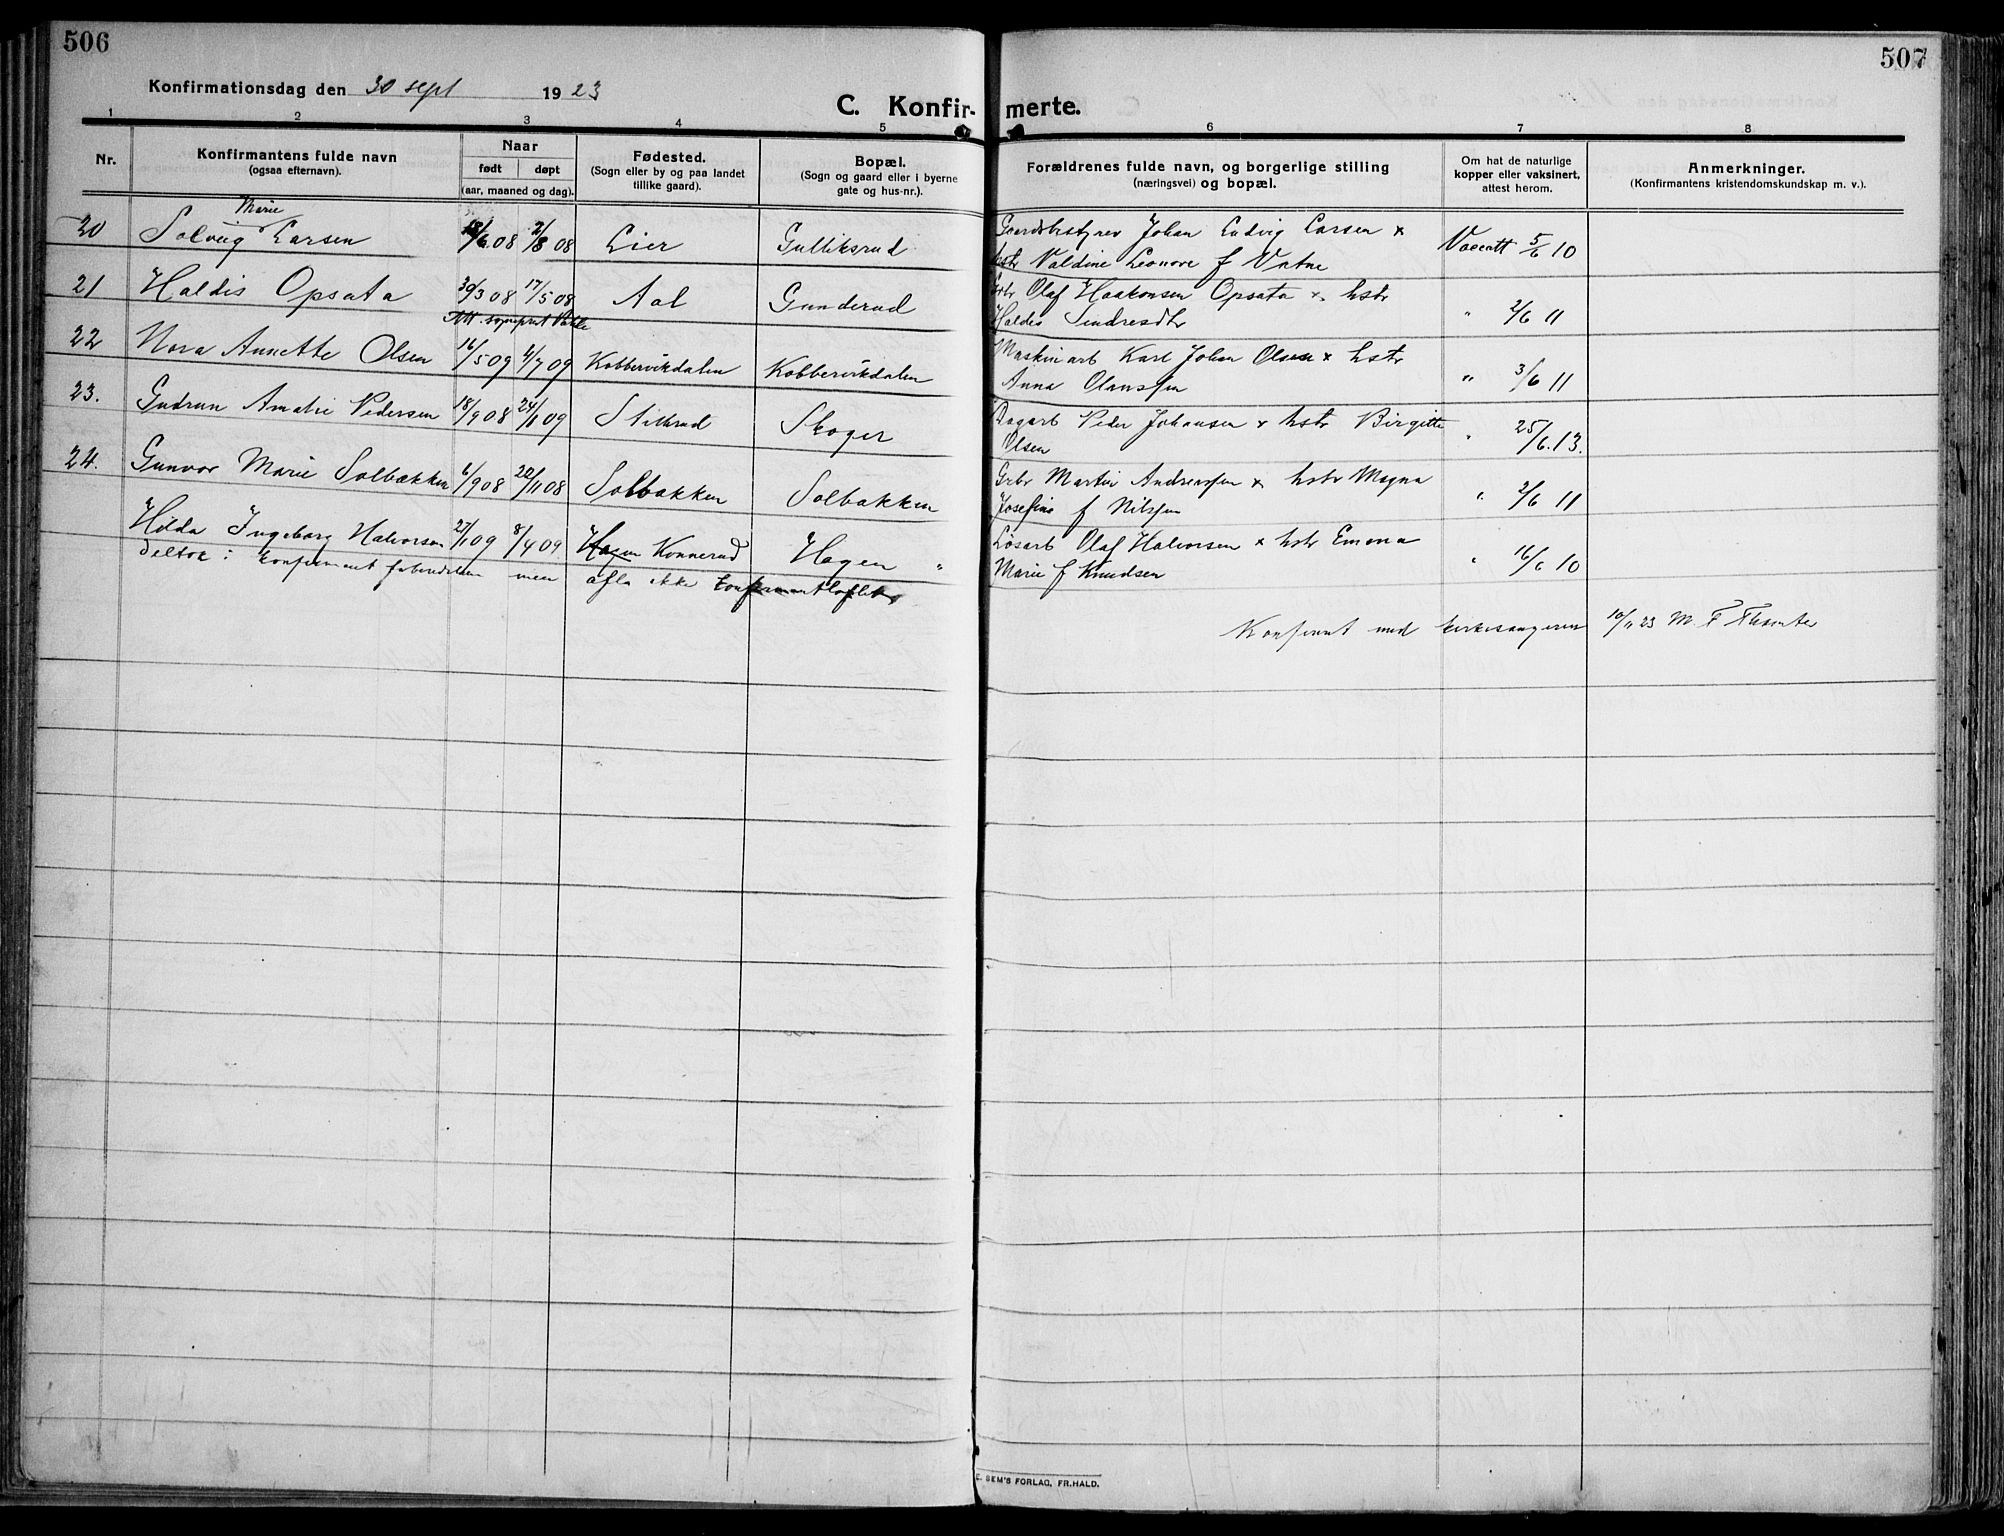 506
507
Konfirmationsdag den 30 sept 1923
C. Konfir-merte.
1 2 3 4 5 6 7 8
Nr.
Konfirmantens fulde navn
(ogsaa efternavn).
Naar
født døpt
(aar, maaned og dag).
Fødested.
(Sogn eller by og paa landet
tillike gaard).
Bopæl.
(Sogn og gaard eller i byerne
gate og hus-nr.).
Forældrenes fulde navn, og borgerlige stilling
(næringsvei) og bopæl.
Om hat de naturlige
kopper eller vaksinert,
attest herom.
Anmerkninger.
(Konfirmantens kristendomskundskap m. v.).
Marie
20 Solveig Larsen 18/6 08 2/8 08 Lier Gulliksrud Gaardsbestyrer Johan Ludvig Larsen x Vaccatt 5/6 10
hstr Valdine Leonore f Vatne
21 Haldis Opsata 30/3 08 17/5 08 Aal Gunderud Grbr Olaf Haakonsen Opsata x hstr " 2/6 11
Haldis Sindresdtr
Att. sognepret
22 Nora Annette Olsen 16/5 09 4/7 09 Kobbervikdalen Kobbervikdalen Maskinarb Karl Johan Olsen x hstr " 3/6 11
Anna Olanssen
23. Gudrun Amalie Pedersen 18/9 08 24/1 09 Stilkrud Skoger Dagarb Peder Johansen x hstr Birgitte " 25/6.13.
Olsen
24. Gunvor Marie Solbakken 6/9 08 22/11 08 Solbakken Solbakken Grbr Martin Andreassen x hstr Magna " 2/6 11
Josefine f Nilssen
Hilda Ingeborg Halvorsen 27/1 09 8/4 09 Hagen Konnerud Hagen " Løsarb Olaf Halvorsen x hstr Emma " 16/6 10
Marie f Knudsen
deltok i konfirmantforberedelsen men afla ikke konfirmantløftet
Konferert med kirkesangeren 10/11 23 M. F.
E. SEM'S FORLAG, FR.HALD.